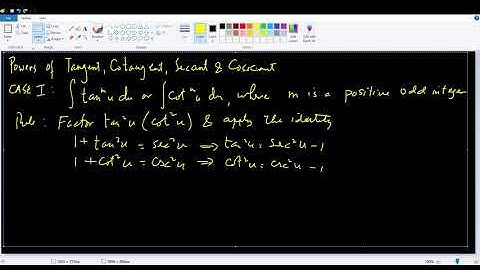 Powers of Tangent, Cotangent, Secant & Cosecant
CASE I: ∫ tanⁿu du or ∫ cotⁿu du, where n is a positive odd integer
Rule: Factor tan²u (cot²u) & apply the identity
1 + tan²u = sec²u ⇒ tan²u = sec²u - 1
1 + cot²u = csc²u ⇒ cot²u = csc²u - 1
100%